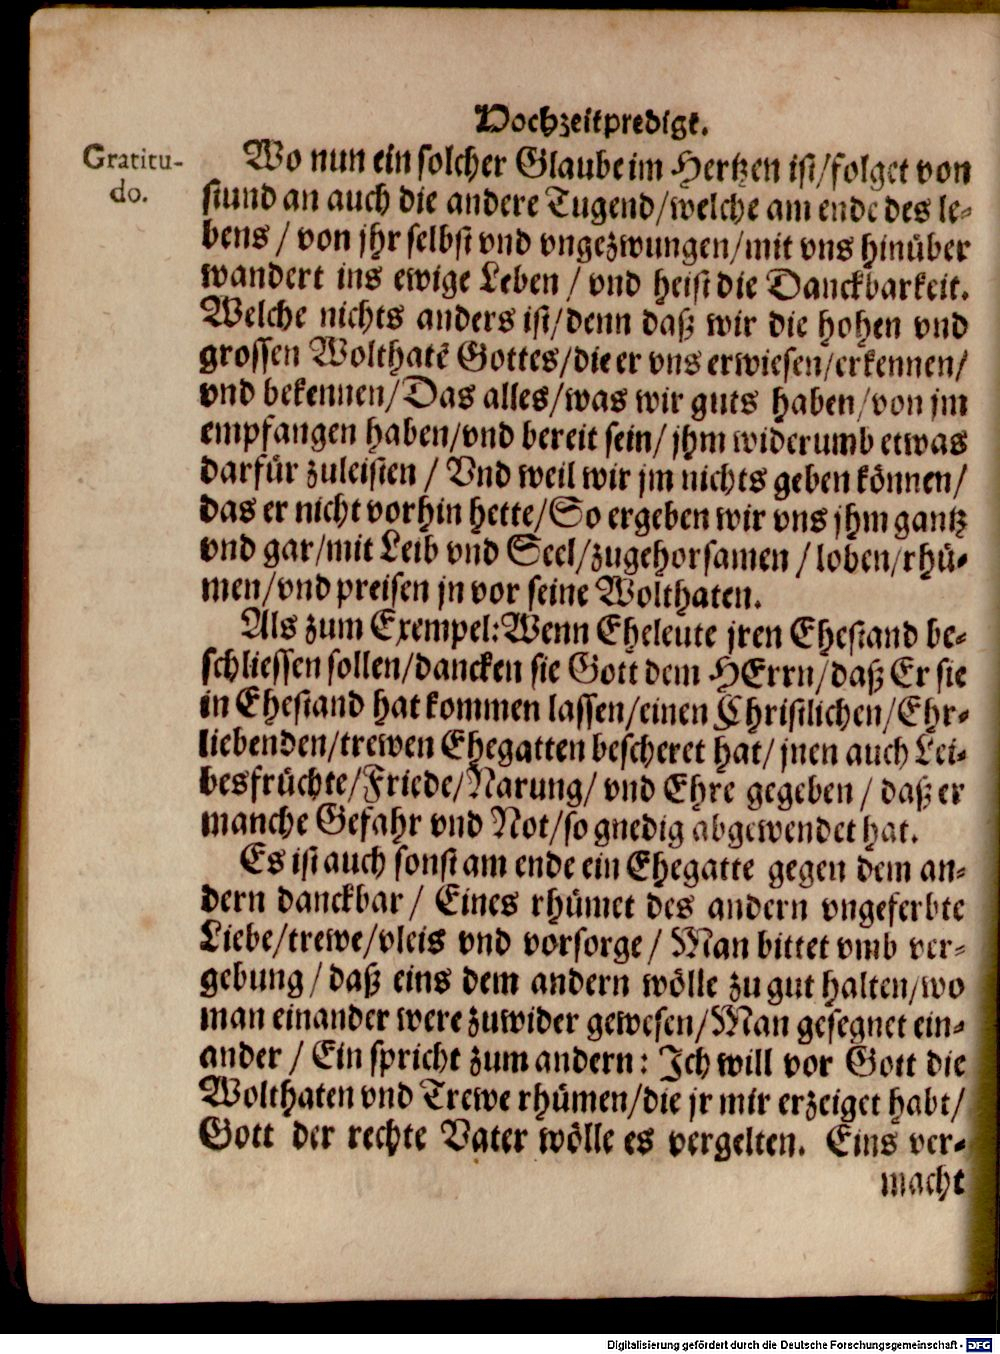 Hochzeitpredigt.
Gratitu-
do.
Wo nun ein solcher Glaube im Hertzen ist/folget von
stund an auch die andere Tugend/welche am ende des le-
bens / von jhr selbst vnd vngezwungen/mit vns hinüber
wandert ins ewige Leben / vnd heist die Danckbarkeit.
Welche nichts anders ist/denn daß wir die hohen vnd
grossen Wolthatẽ Gottes/die er vns erwiesen/erkennen/
vnd bekennen/Das alles/was wir guts haben/von jm
empfangen haben/vnd bereit sein/ jhm widerumb etwas
darfür zuleisten / Vnd weil wir jm nichts geben können/
das er nicht vorhin hette/So ergeben wir vns jhm gantz
vnd gar/mit Leib vnd Seel/zugehorsamen / loben/rhü-
men/vnd preisen jn vor seine Wolthaten.
Als zum Exempel:Wenn Eheleute jren Ehestand be-
schliessen sollen/dancken sie Gott dem HErrn/daß Er sie
in Ehestand hat kommen lassen/einen Christlichen/Ehr-
liebenden/trewen Ehegatten bescheret hat/ jnen auch Lei-
besfrüchte/Friede/Narung/ vnd Ehre gegeben / daß er
manche Gefahr vnd Not/so gnedig abgewendet hat.
Es ist auch sonst am ende ein Ehegatte gegen dem an-
dern danckbar / Eines rhümet des andern vngeferbte
Liebe/trewe/vleis vnd vorsorge / Man bittet vmb ver-
gebung / daß eins dem andern wölle zu gut halten/wo
man einander were zuwider gewesen/Man gesegnet ein-
ander / Ein spricht zum andern: Ich will vor Gott die
Wolthaten vnd Trewe rhümen/die jr mir erzeiget habt/
Gott der rechte Vater wölle es vergelten. Eins ver-
macht
Digitalisierung gefördert durch die Deutsche Forschungsgemeinschaft - DFG